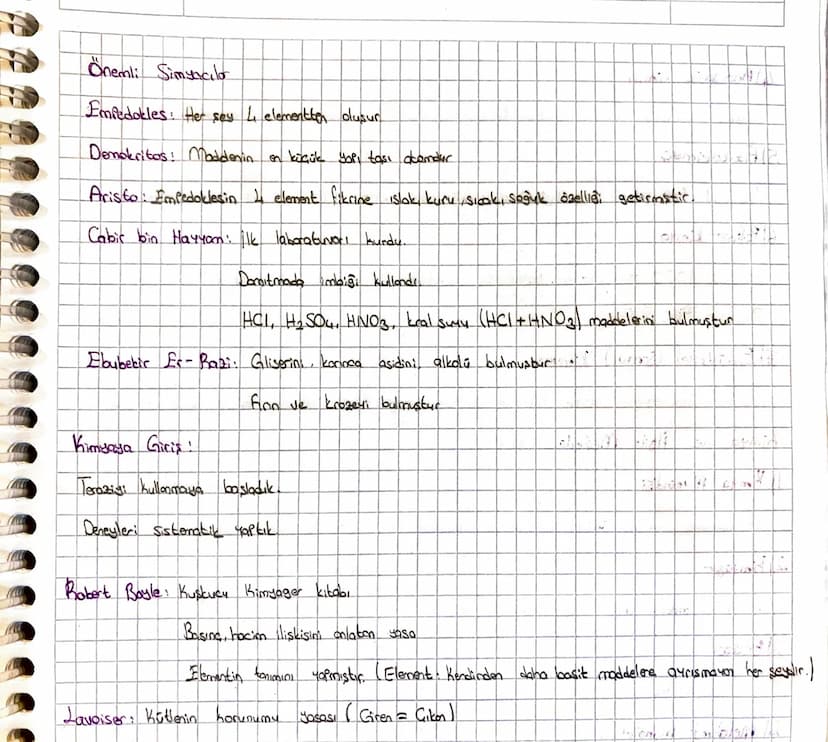 Önemli Simyacılar
Empedokles: Her şey 4 elementten oluşur
Demokritos: Maddenin en küçük yapı taşı atomdur
Aristo: Empedoklesin 4 element fikrine ıslak, kuru, sıcak, soğuk özelliği getirmiştir.
Cabir bin Hayyan: İlk laboratuvarı kurdu.
Damıtmada imbiği kullandı.
HCl, H₂SO₄, HNO₃, kral suyu (HCl+HNO₃) maddelerini bulmuştur
Ebubekir Er-Razi: Gliserini, karınca asidini, alkolü bulmuştur
Fırın ve krozeyi bulmuştur
Kimyaya Giriş:
Teraziyi kullanmaya başladık.
Deneyleri sistematik yaptık.
Robert Boyle: Kuşkucu Kimyager kitabı
Basınç, hacim ilişkisini anlatan yasa
Elementin tanımını yapmıştır. (Element: Kendinden daha basit maddelere ayrışmayan her şeydir.)
Lavoiser: Kütlenin korunumu yasası (Giren = Çıkan)